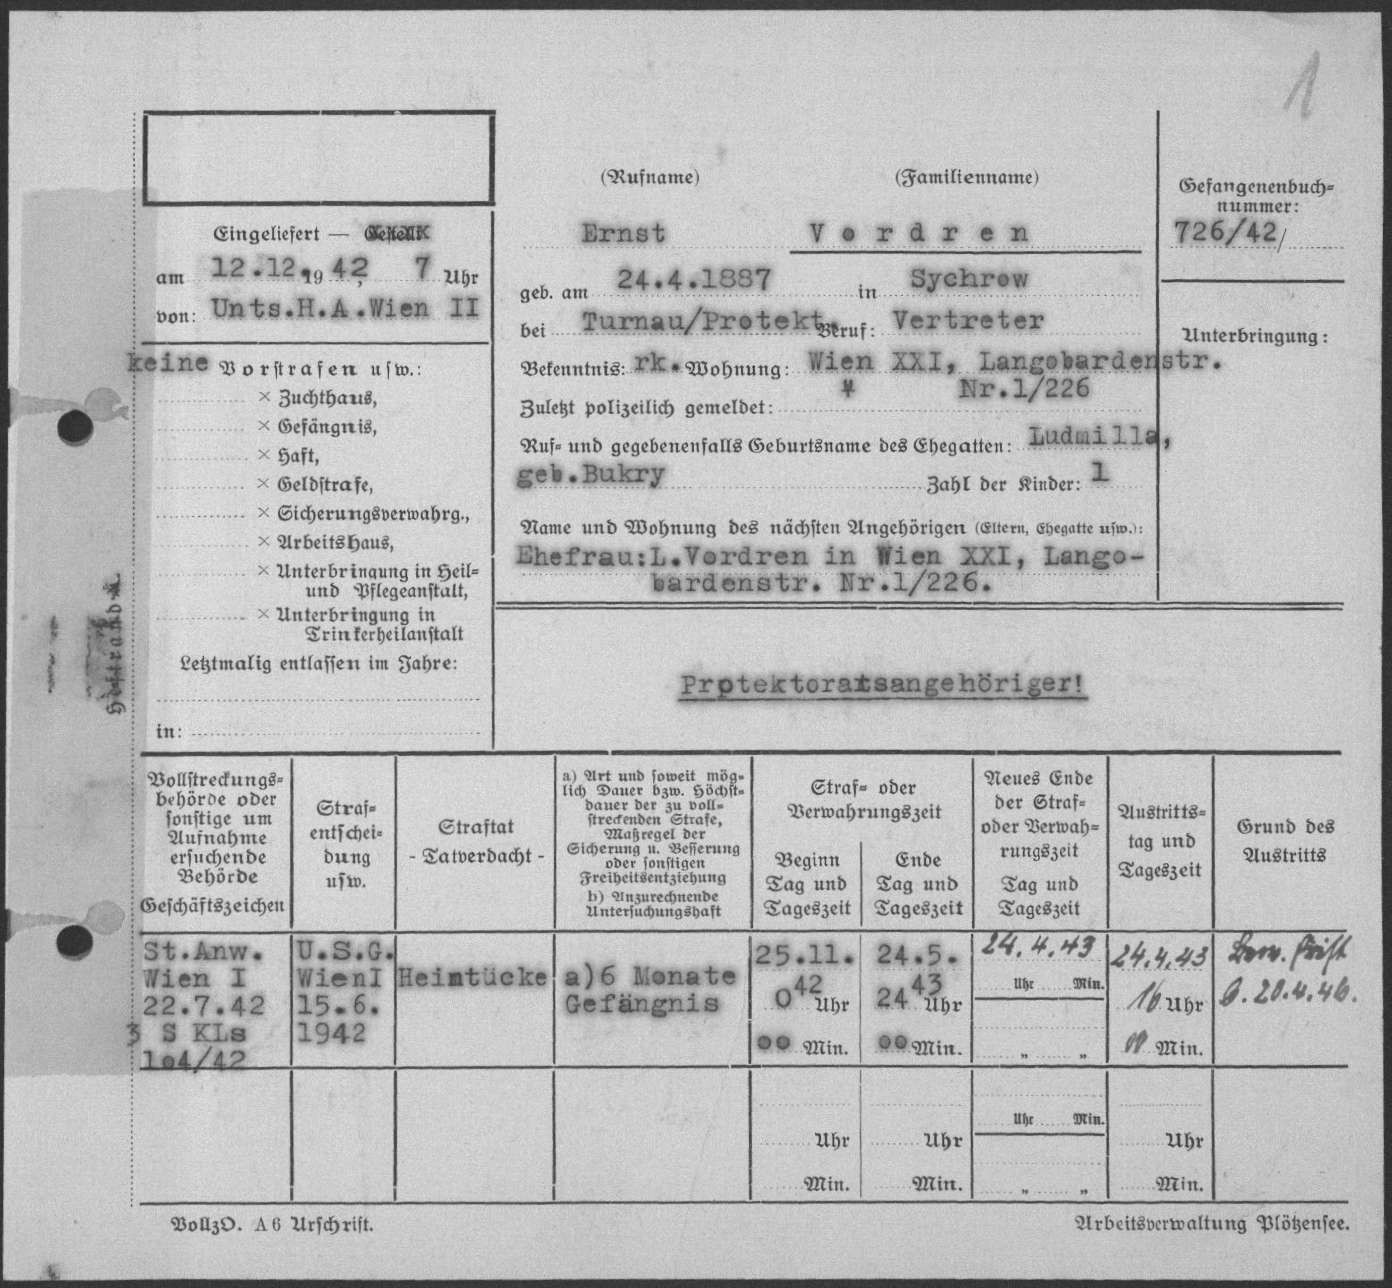 1
(Rufname) (Familienname)
Gefangenenbuch-
nummer:
Eingeliefert —
Ernst Vordren
726/42/
am 12.12.1942, 7 Uhr
geb. am 24.4.1887 in Sychrow
von: Unts.H.A.Wien II
bei Turnau/Protekt. Beruf: Vertreter
Unterbringung:
keine Vorstrafen usw.:
Bekenntnis: rk. Wohnung: Wien XXI, Langobardenstr.
Nr.1/226
× Zuchthaus,
Zuletzt polizeilich gemeldet:
× Gefängnis,
Ruf- und gegebenenfalls Geburtsname des Ehegatten: Ludmilla,
× Haft,
geb.Bukry Zahl der Kinder: 1
× Geldstrafe,
× Sicherungsverwahrg.,
Name und Wohnung des nächsten Angehörigen (Eltern, Ehegatte usw.):
× Arbeitshaus,
Ehefrau:L.Vordren in Wien XXI, Lango-
bardenstr. Nr.1/226.
× Unterbringung in Heil-
und Pflegeanstalt,
× Unterbringung in
Trinkerheilanstalt
Heftrand
Letztmalig entlassen im Jahre:
Protektoratsangehöriger!
in:
Vollstreckungs-
behörde oder
sonstige um
Aufnahme
ersuchende
Behörde
Geschäftszeichen
Straf-
entschei-
dung
usw.
Straftat
- Tatverdacht -
a) Art und soweit mög-
lich Dauer bzw. Höchst-
dauer der zu voll-
streckenden Strafe,
Maßregel der
Sicherung u. Besserung
oder sonstigen
Freiheitsentziehung
b) Anzurechnende
Untersuchungshaft
Straf- oder
Verwahrungszeit
Beginn
Tag und
Tageszeit
Ende
Tag und
Tageszeit
Neues Ende
der Straf-
oder Verwah-
rungszeit
Tag und
Tageszeit
Austritts-
tag und
Tageszeit
Grund des
Austritts
St.Anw.
Wien I
22.7.42
3 S KLs
1o4/42
U.S.G.
WienI
15.6.
1942
Heimtücke
a)6 Monate
Gefängnis
25.11.
42
0 Uhr
oo Min.
24.5.
43
24 Uhr
oo Min.
24.4.43
Uhr Min.
„ „
24.4.43
16 Uhr
00 Min.
Bew. Frist
b. 20.4.46.
Uhr
Min.
Uhr
Min.
Uhr Min.
„ „
Uhr
Min.
VollzO. A 6 Urschrift.
Arbeitsverwaltung Plötzensee.